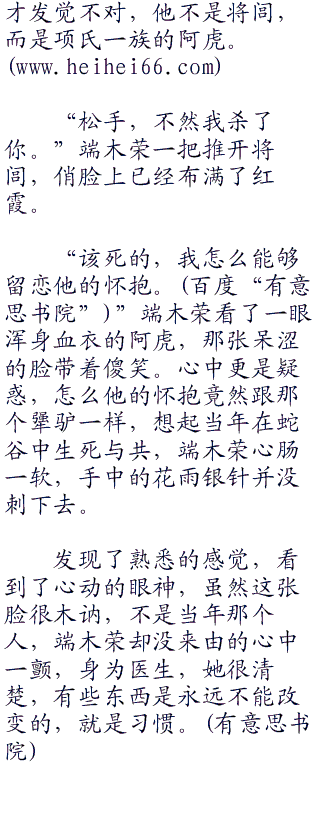 才发觉不对，他不是将闾，
而是项氏一族的阿虎。
(www.heihei66.com)
“松手，不然我杀了
你。”端木荣一把推开将
闾，俏脸上已经布满了红
霞。
“该死的，我怎么能够
留恋他的怀抱。(百度“有意
思书院”)”端木荣看了一眼
浑身血衣的阿虎，那张呆涩
的脸带着傻笑。心中更是疑
惑，怎么他的怀抱竟然跟那
个犟驴一样，想起当年在蛇
谷中生死与共，端木荣心肠
一软，手中的花雨银针并没
刺下去。
发现了熟悉的感觉，看
到了心动的眼神，虽然这张
脸很木讷，不是当年那个
人，端木荣却没来由的心中
一颤，身为医生，她很清
楚，有些东西是永远不能改
变的，就是习惯。(有意思书
院)